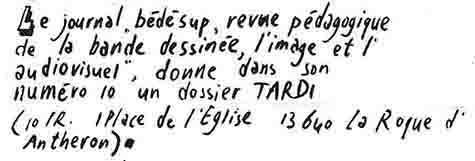 Le journal, bédésup, revue pédagogique
de la bande dessinée, l'image et l'
audiovisuel", donne dans son
numéro 10 un dossier TARDI
(10 FR. 1 Place de l'Église 13640 La Roque d'
Antheron).